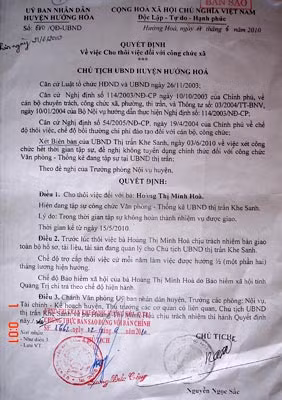 BẢN SAO
ỦY BAN NHÂN DÂN
HUYỆN HƯỚNG HOÁ
CỘNG HOÀ XÃ HỘI CHỦ NGHĨA VIỆT NAM
Độc Lập - Tự do - Hạnh phúc
Số: /QĐ-UBND
Hướng Hoá, ngày tháng 6 năm 2010
QUYẾT ĐỊNH
Về việc Cho thôi việc đối với công chức xã
***
CHỦ TỊCH UBND HUYỆN HƯỚNG HOÁ
Căn cứ Luật tổ chức HĐND và UBND ngày 26/11/2003;
Căn cứ Nghị định số 114/2003/NĐ-CP ngày 10/10/2003 của Chính phủ, về
cán bộ chuyên trách, công chức xã, phường, thị trấn, và Thông tư số 03/2004/TT-BNV,
ngày 10/01/2004 của Bộ Nội vụ hướng dẫn thực hiện Nghị định số: 114/2003/NĐ-CP;
Căn cứ Nghị định số 54/2005/NĐ-CP, ngày 19/4/2004 của Chính phủ về chế
độ thôi việc, chế độ bồi thường chi phí đào tạo đối với cán bộ, công chức;
Xét Biên bản của UBND Thị trấn Khe Sanh, ngày 03/6/2010 về việc xét công
chức hết thời gian tập sự, đề nghị không tuyển dụng chính thức đối với công chức
Văn phòng - Thống kê đang tập sự tại UBND thị trấn;
Theo đề nghị của Trưởng phòng Nội vụ huyện.
QUYẾT ĐỊNH:
Điều 1. Cho thôi việc đối với bà: Hoàng Thị Minh Hoà.
Hiện đang tập sự công chức Văn phòng - Thống kê UBND thị trấn Khe Sanh.
Lý do: Trong thời gian tập sự không hoàn thành nhiệm vụ được giao.
Thời gian kể từ ngày 15/5/2010
Điều 2. Trước lúc thôi việc bà Hoàng Thị Minh Hoà chịu trách nhiệm bàn giao
toàn bộ hồ sơ, tài liệu, tài sản đang quản lý cho Chủ tịch UBND thị trấn Khe Sanh.
Chế độ trợ cấp thôi việc cứ mỗi năm làm việc được hưởng ½ (một phần hai)
tháng lương hiện hưởng.
Chế độ Bảo hiểm xã hội của bà Hoàng Thị Minh Hoà do Bảo hiểm xã hội tỉnh
Quảng Trị chi trả theo chế độ hiện hành.
Điều 3. Chánh Văn phòng Uỷ ban nhân dân huyện, Trưởng các phòng: Nội vụ,
Tài chính - Kế hoạch huyện, Thủ trưởng các cơ quan có liên quan, Chủ tịch UBND
thị trấn Khe Sanh và bà Hoàng Thị Minh Hoà chịu trách nhiệm thi hành Quyết định
này./.
CHỨNG THỰC BẢN SAO ĐÚNG VỚI BẢN CHÍNH
Nơi nhận:
- Như điều 3
- Lưu VT.
CHỦ TỊCH
CHỦ TỊCH
Nguyễn Ngọc Sắc